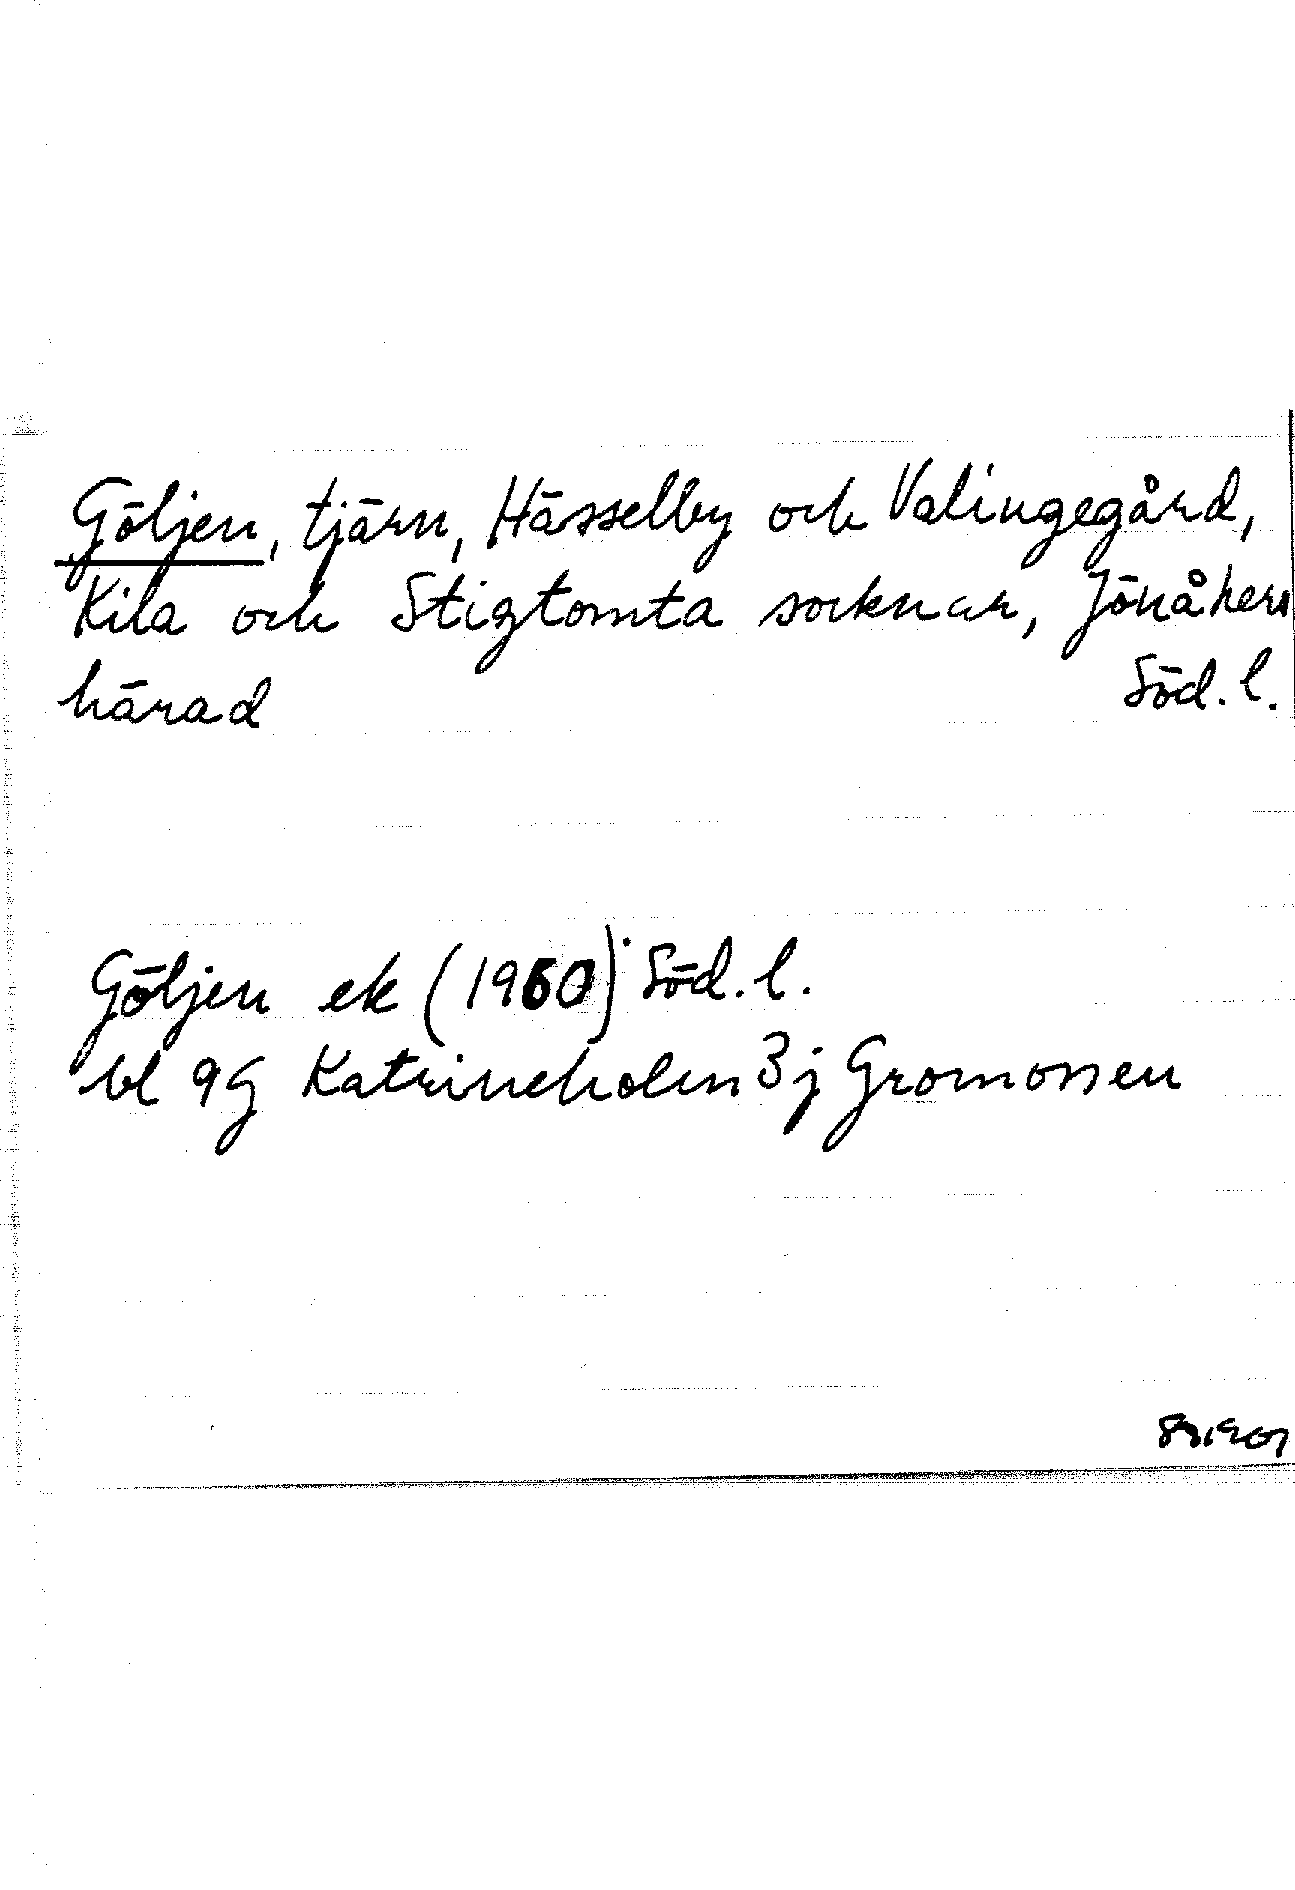 Göljen, tjärn, Hässelby och Valingegård,
Kila och Stigtomta socknar, Jönåkers
härad Söd. l.
Göljen ek (1960) Söd. l.
bl 9G Katrineholm 3j Gromossen